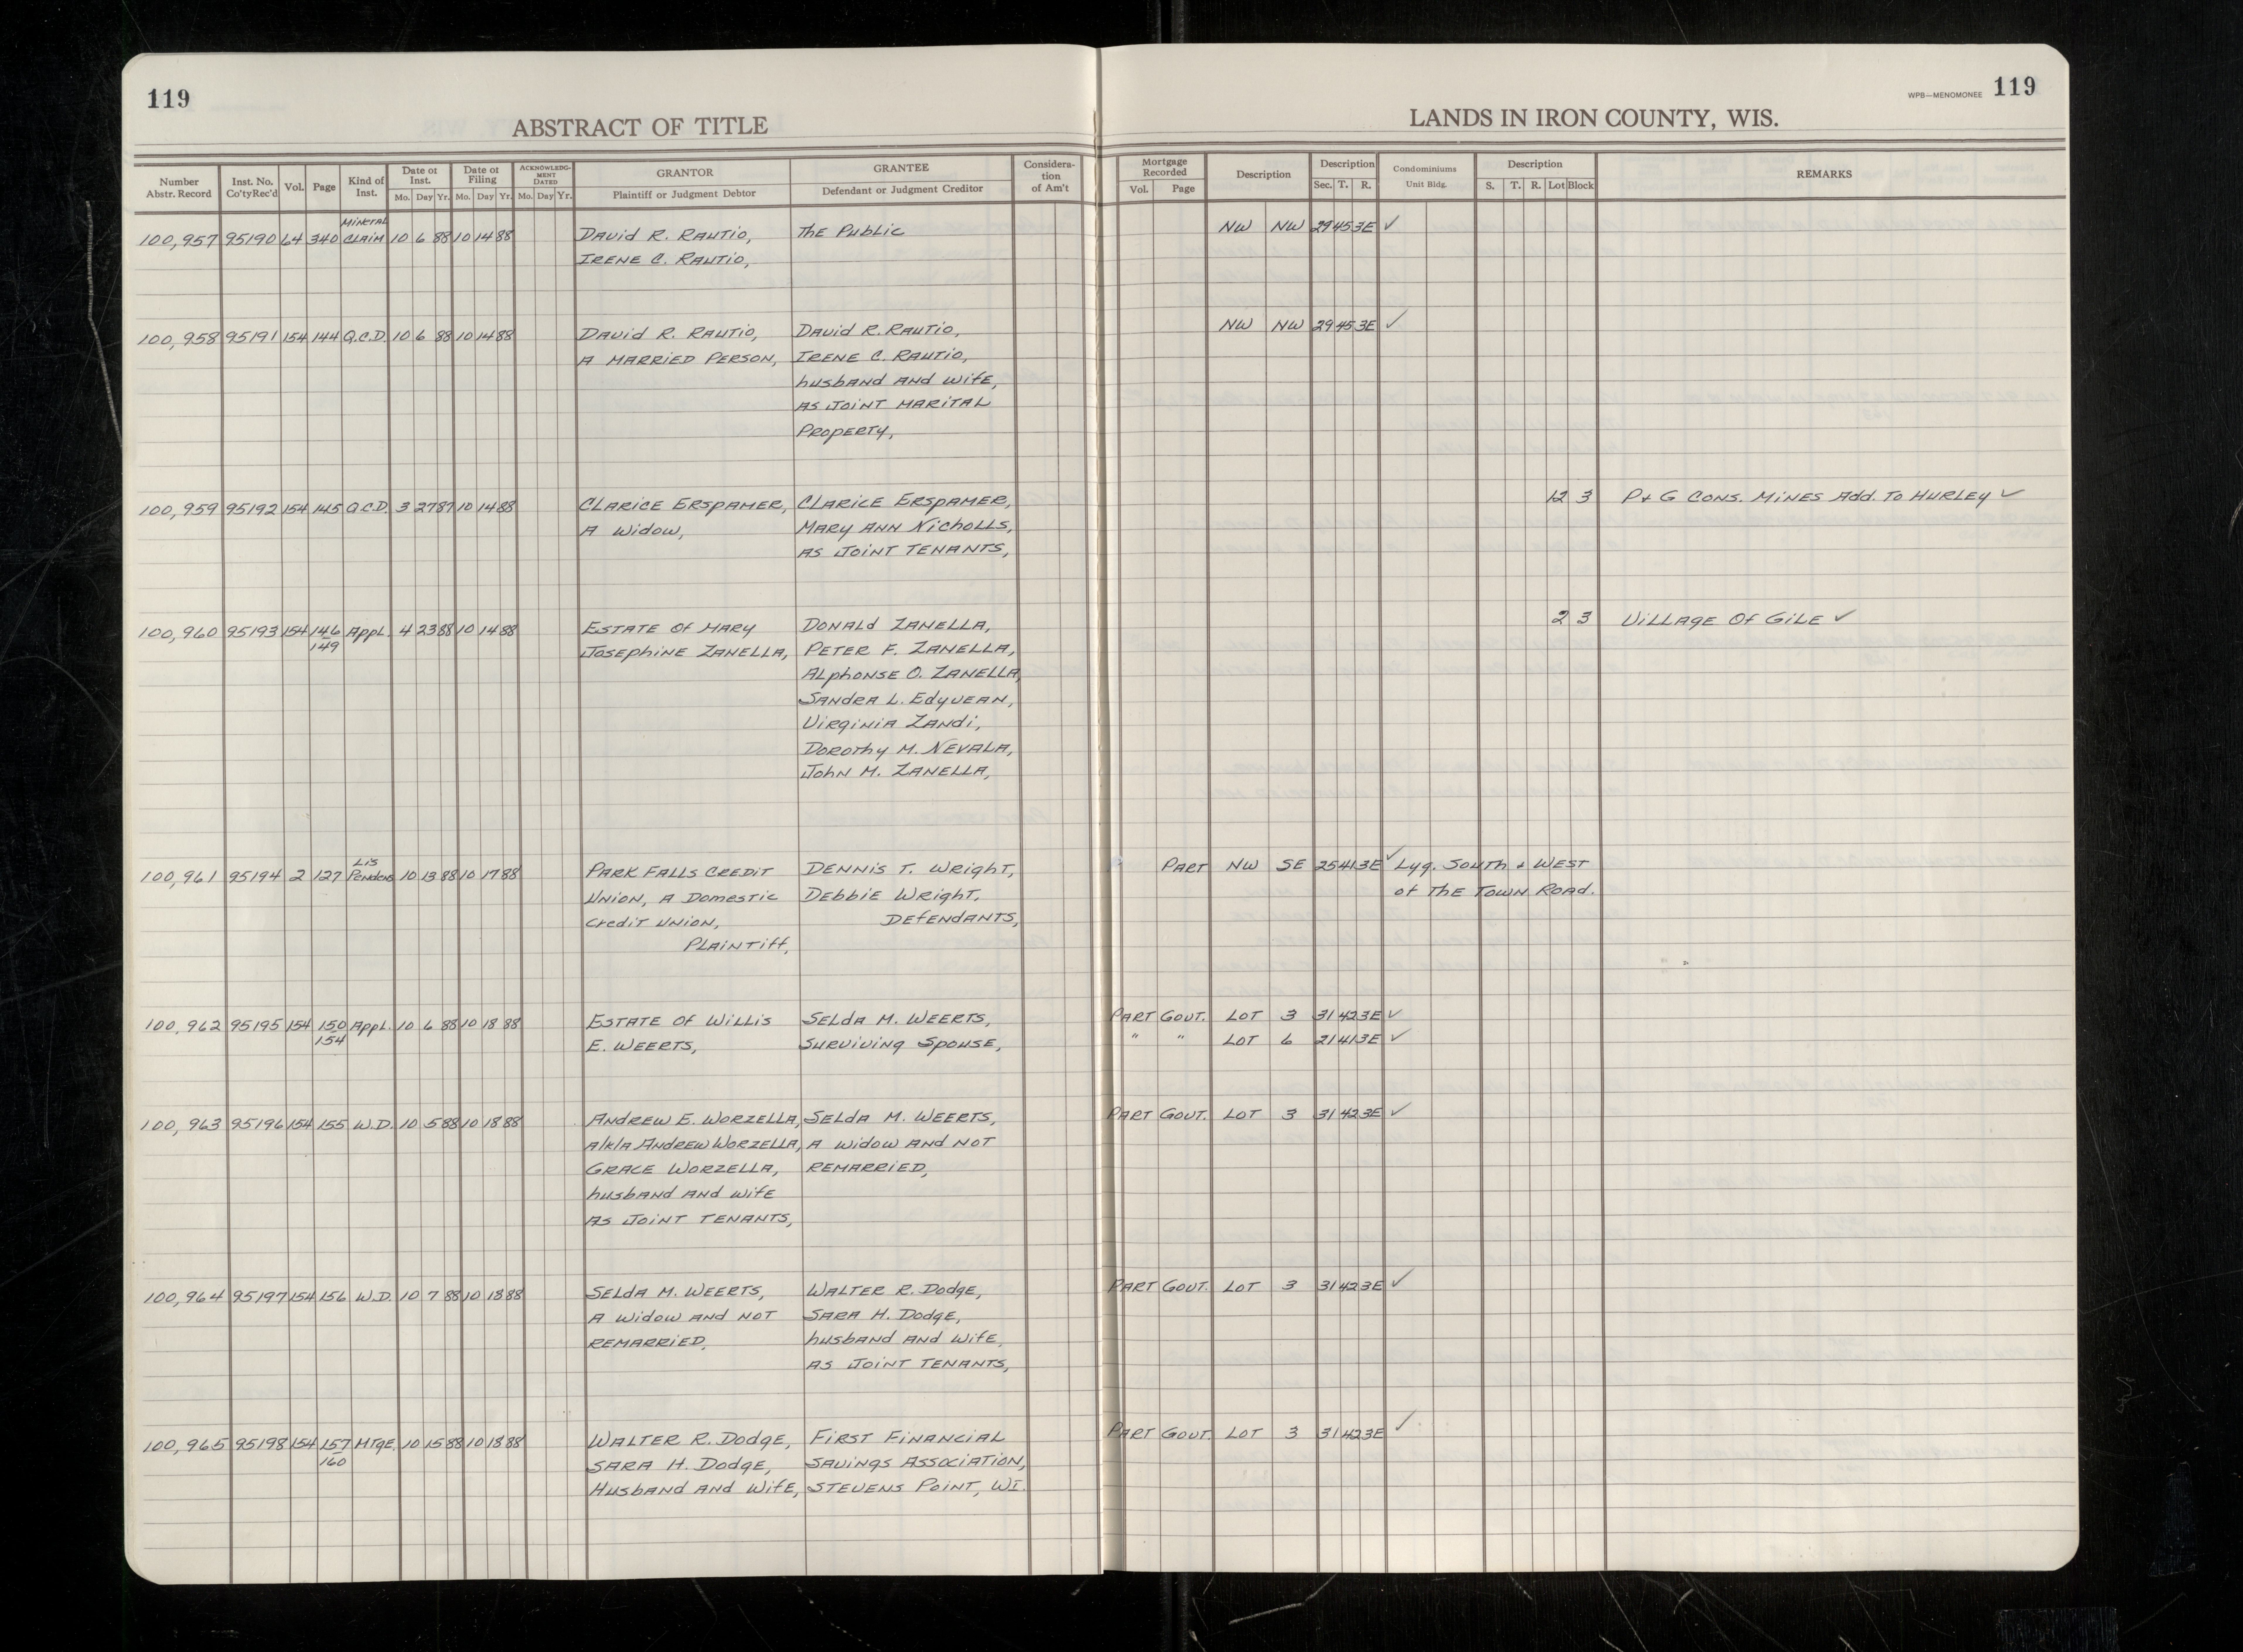 119
ABSTRACT OF TITLE
LANDS IN IRON COUNTY, WIS.
WPB—MENOMONEE 119
Number Abstr. Record
Inst. No. Co'ty Rec'd
Vol.
Page
Kind of Inst.
Date of Inst.
Mo. Day Yr.
Date of Filing
Mo. Day Yr.
ACKNOWLEDGMENT DATED
Mo. Day Yr.
GRANTOR
Plaintiff or Judgment Debtor
GRANTEE
Defendant or Judgment Creditor
Considera-
tion
of Am't
Mortgage Recorded
Vol. Page
Description
Description
Sec. T. R.
Condominiums
Unit Bldg.
Description
S. T. R. Lot Block
REMARKS
Mineral
100,957 95190 64 340 CLAIM 10 6 88 10 14 88 DAVID R. RAUTIO, The Public NW NW 29 45 3E ✓
IRENE C. RAUTIO,
100,958 95191 154 144 Q.C.D. 10 6 88 10 14 88 DAVID R. RAUTIO, DAVID R. RAUTIO, NW NW 29 45 3E ✓
A MARRIED PERSON, IRENE C. RAUTIO,
husband AND wife,
AS JOINT MARITAL
PROPERTY,
100,959 95192 154 145 Q.C.D. 3 27 87 10 14 88 CLARICE ERSPAMER, CLARICE ERSPAMER, 12 3 P + G CONS. MINES Add. TO HURLEY ✓
A Widow, MARY ANN NICHOLLS,
AS JOINT TENANTS,
100,960 95193 154 146 APPL. 4 23 88 10 14 88 ESTATE OF MARY DONALD ZANELLA, 2 3 VILLAGE OF GILE ✓
149 JOSEPHINE ZANELLA, PETER F. ZANELLA,
ALPHONSE O. ZANELLA,
SANDRA L. EDYVEAN,
VIRGINIA ZANDI,
DOROTHY M. NEVALA,
JOHN M. ZANELLA,
Lis
100,961 95194 2 127 Pendens 10 13 88 10 17 88 PARK FALLS CREDIT DENNIS T. WRIGHT, PART NW SE 25 41 3E ✓ Lyg. South + WEST
UNION, A Domestic DEBBIE WRIGHT, of THE TOWN ROAD.
Credit UNION, DEFENDANTS,
PLAINTIFF,
100,962 95195 154 150 APPL. 10 6 88 10 18 88 ESTATE OF WILLIS SELDA M. WEERTS, PART GOVT. LOT 3 31 42 3E ✓
154 E. WEERTS, SURVIVING SPOUSE, " " LOT 6 21 41 3E ✓
100,963 95196 154 155 W.D. 10 5 88 10 18 88 ANDREW E. WORZELLA, SELDA M. WEERTS, PART GOVT. LOT 3 31 42 3E ✓
a/k/a ANDREW WORZELLA, A WIDOW AND NOT
GRACE WORZELLA, REMARRIED,
husband AND wife
AS JOINT TENANTS,
100,964 95197 154 156 W.D. 10 7 88 10 18 88 SELDA M. WEERTS, WALTER R. Dodge, PART GOVT. LOT 3 31 42 3E ✓
A WIDOW AND NOT SARA H. Dodge,
REMARRIED, husband AND wife,
AS JOINT TENANTS,
100,965 95198 154 157 MTGE. 10 15 88 10 18 88 WALTER R. Dodge, FIRST FINANCIAL PART GOVT. LOT 3 31 42 3E ✓
160 SARA H. Dodge, SAVINGS ASSOCIATION,
Husband AND Wife, STEVENS POINT, WI.